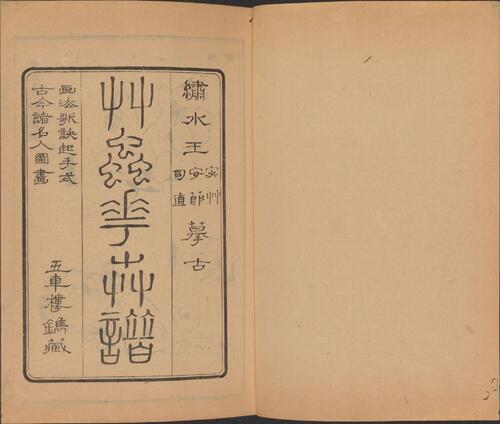 繡水王宓艸安節司直摹古
艸蟲華卉譜
畫法歌訣起手式
古今諸名人圖畫
五車樓鐫藏